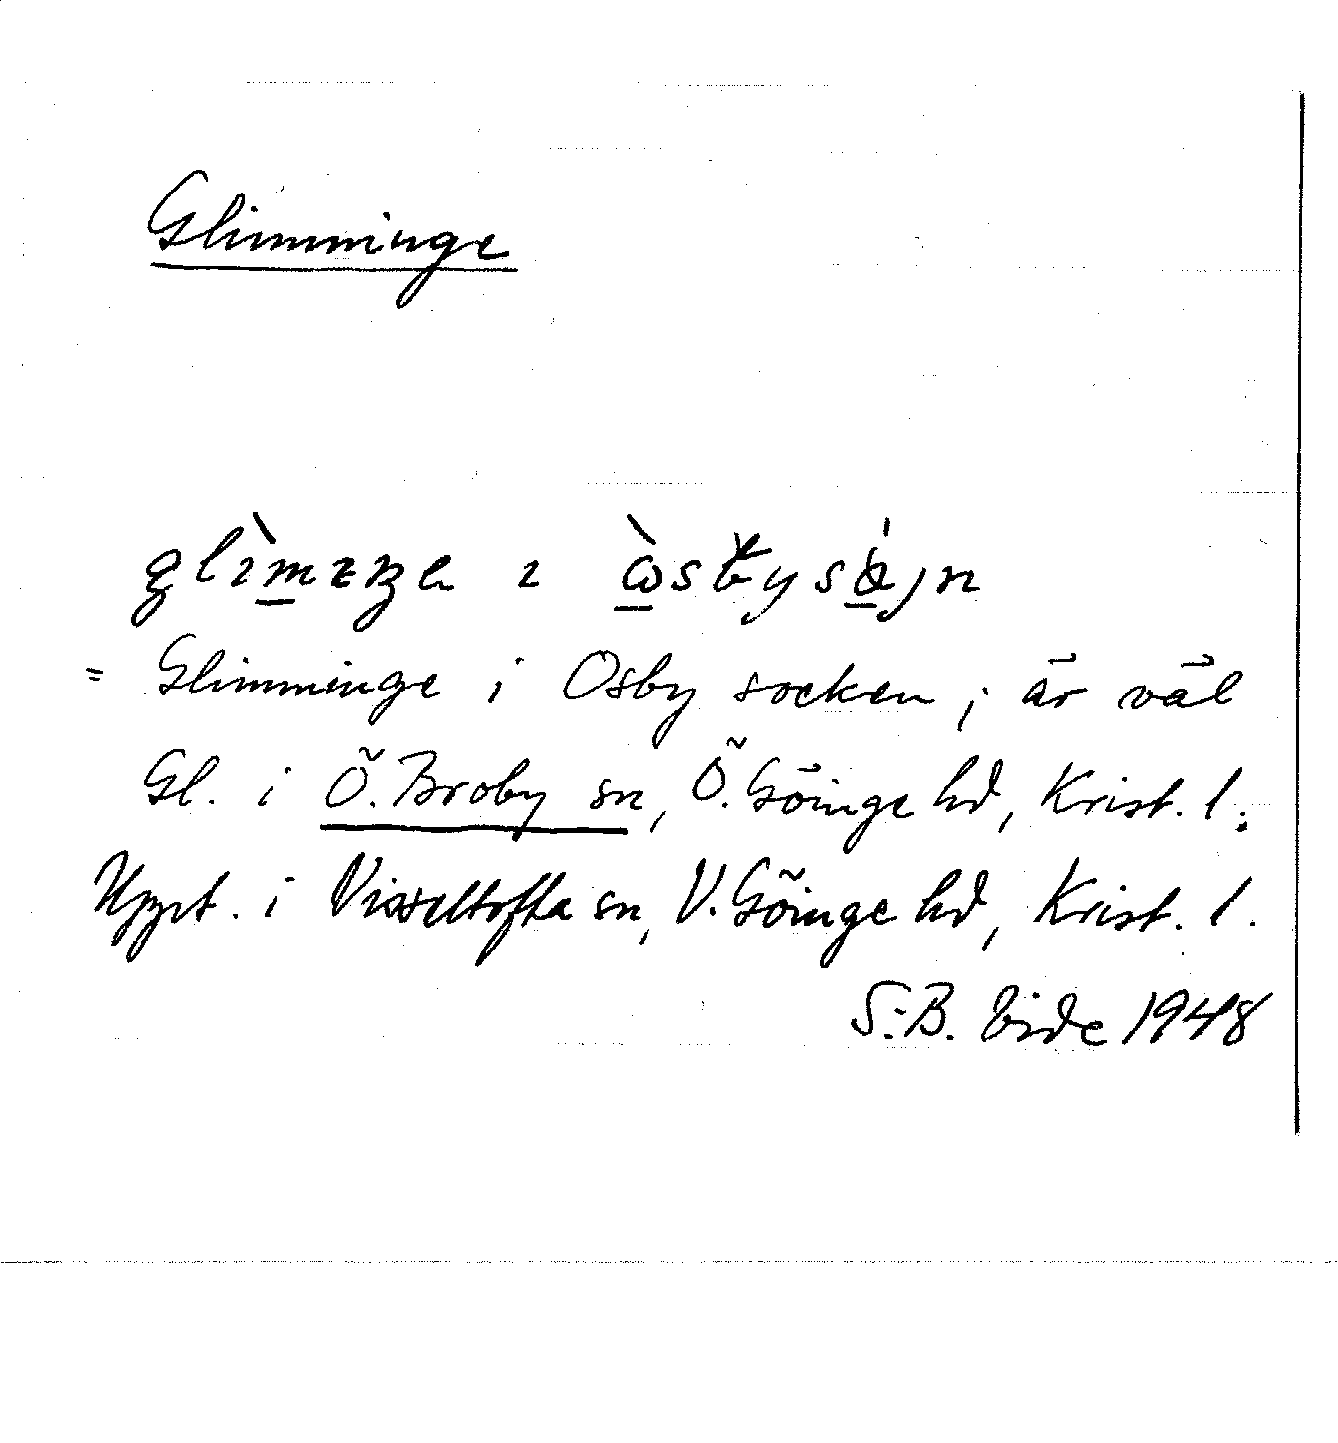 Glimminge
= Glimminge i Osby socken; är väl
Gl. i Ö. Broby sn, Ö. Göinge hd, Krist. l.
Uppt. i Visseltofta sn, V. Göinge hd, Krist. l.
S.-B. Vide 1948